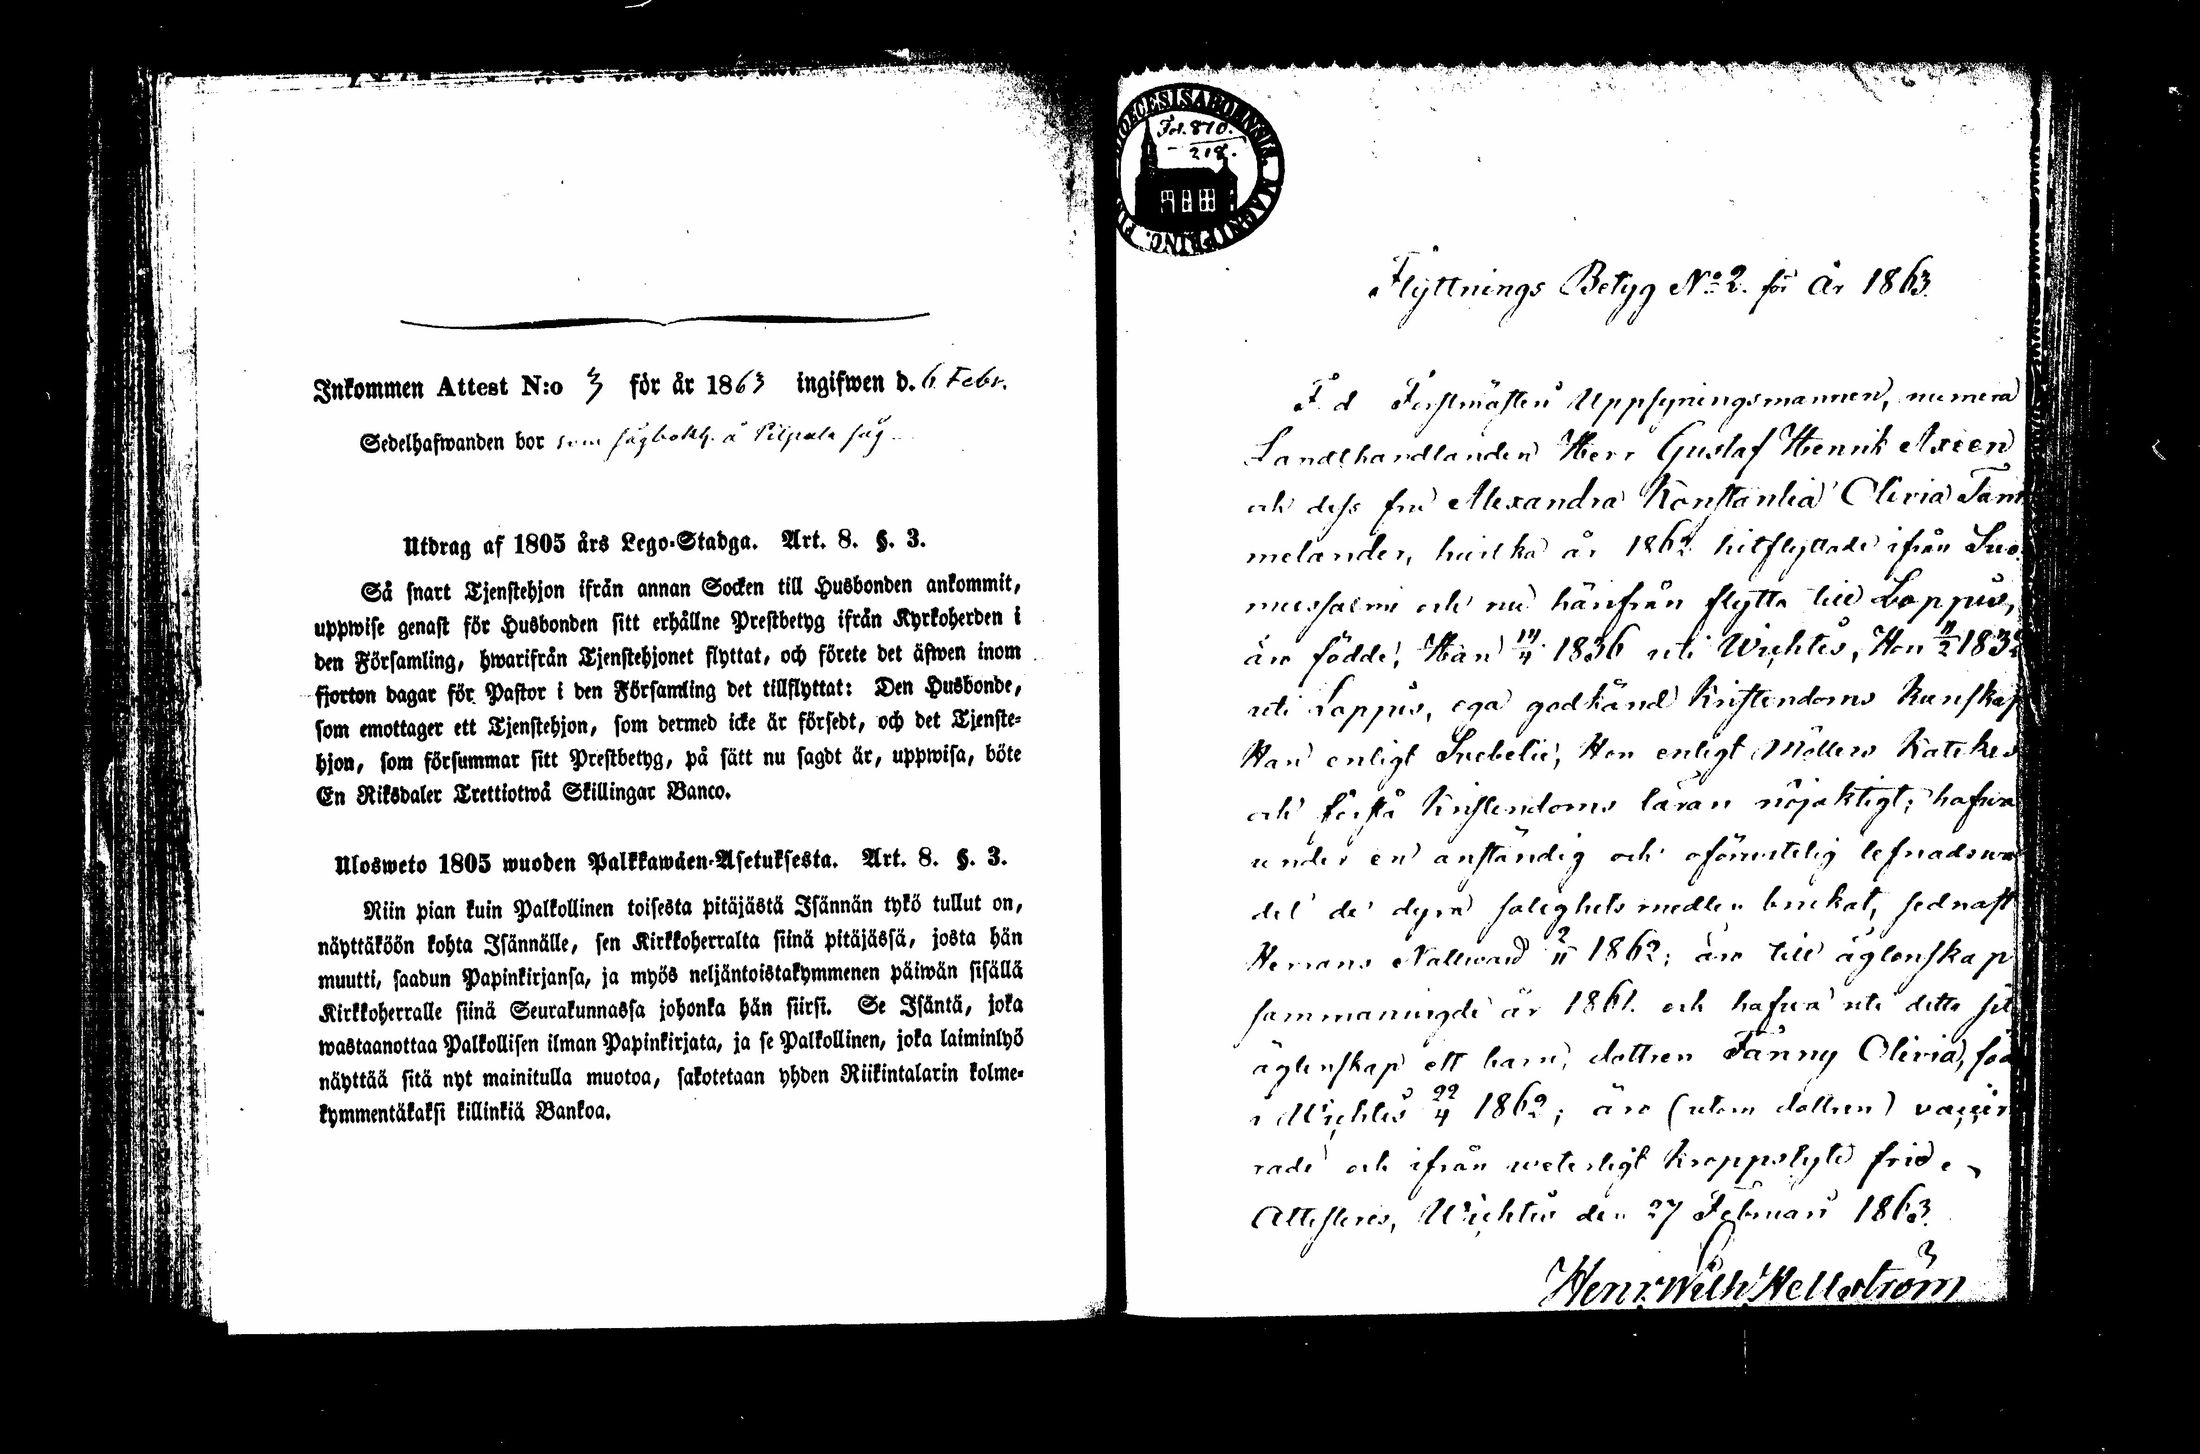 Inkommen Attest N:o 3 för år 1863 ingifwen d. 6 Febr.
Sedelhafwanden bor som sågbokh. å Pilpala såg
Utdrag af 1805 års Lego-Stadga. Art. 8. §. 3.
Så snart Tjenstehjon ifrån annan Socken till Husbonden ankommit,
uppwise genast för Husbonden sitt erhållne Prestbetyg ifrån Kyrkoherden i
den Församling, hwarifrån Tjenstehjonet flyttat, och förete det äfwen inom
fjorton dagar för Pastor i den Församling det tillflyttat: Den Husbonde,
som emottager ett Tjenstehjon, som dermed icke är försedt, och det Tjenste-
hjon, som försummar sitt Prestbetyg, på sätt nu sagdt är, uppwisa, böte
En Riksdaler Trettiotwå Skillingar Banco.
Ulosweto 1805 wuoden Palkkawäen-Asetuksesta. Art. 8. §. 3.
Niin pian kuin Palkollinen toisesta pitäjästä Isännän tykö tullut on,
näyttäköön kohta Isännälle, sen Kirkkoherralta siinä pitäjässä, josta hän
muutti, saadun Papinkirjansa, ja myös neljäntoistakymmenen päiwän sisällä
Kirkkoherralle siinä Seurakunnassa johonka hän siirsi. Se Isäntä, joka
wastaanottaa Palkollisen ilman Papinkirjata, ja se Palkollinen, joka laiminlyö
näyttää sitä nyt mainitulla muotoa, sakotetaan yhden Riikintalarin kolme-
kymmentäkaksi killinkiä Bankoa.
DIOECESIS ABOENSIS. MAGNI PRINC. FIN
Fol. 870.
218.
Flyttnings Betyg No 2. för År 1863.
F. d Forstmästen Uppsyningsmannen, numera
Landthandlanden Herr Gustaf Henrik Axeen
och dess fru Alexandra Konstantia Olivia Tam
melander, hvilka år 1862 hitflyttade ifrån Suo
mussalmi och nu härifrån flytta till Loppis,
äro födde, Han 14/4 1836 uti Wichtis, Hon 11/2 1832
uti Loppis, ega godkänd Kristendoms Kunskap
Han enligt Svebelii, Hon enligt Möllers Katekes
och förstå Kristendoms läran nöjaktigt; hafva
under en anständig och oförvitelig lefnadswa
del de dyra salighets medlen brukat, sednast
Herrans Nattward 2/11 1862; äro till äktenskap
sammanvigde år 1861. och hafva uti detta sit
äktenskap ett barn, dottren Fanny Olivia, föd
i Wichtis 22/4 1862; äro (utom dottren) vaccine
rade och ifrån weterligt kroppslyte frie,
Attesteres, Wichtis den 27 Februari 1863.
Henr. Wilh. Hellström